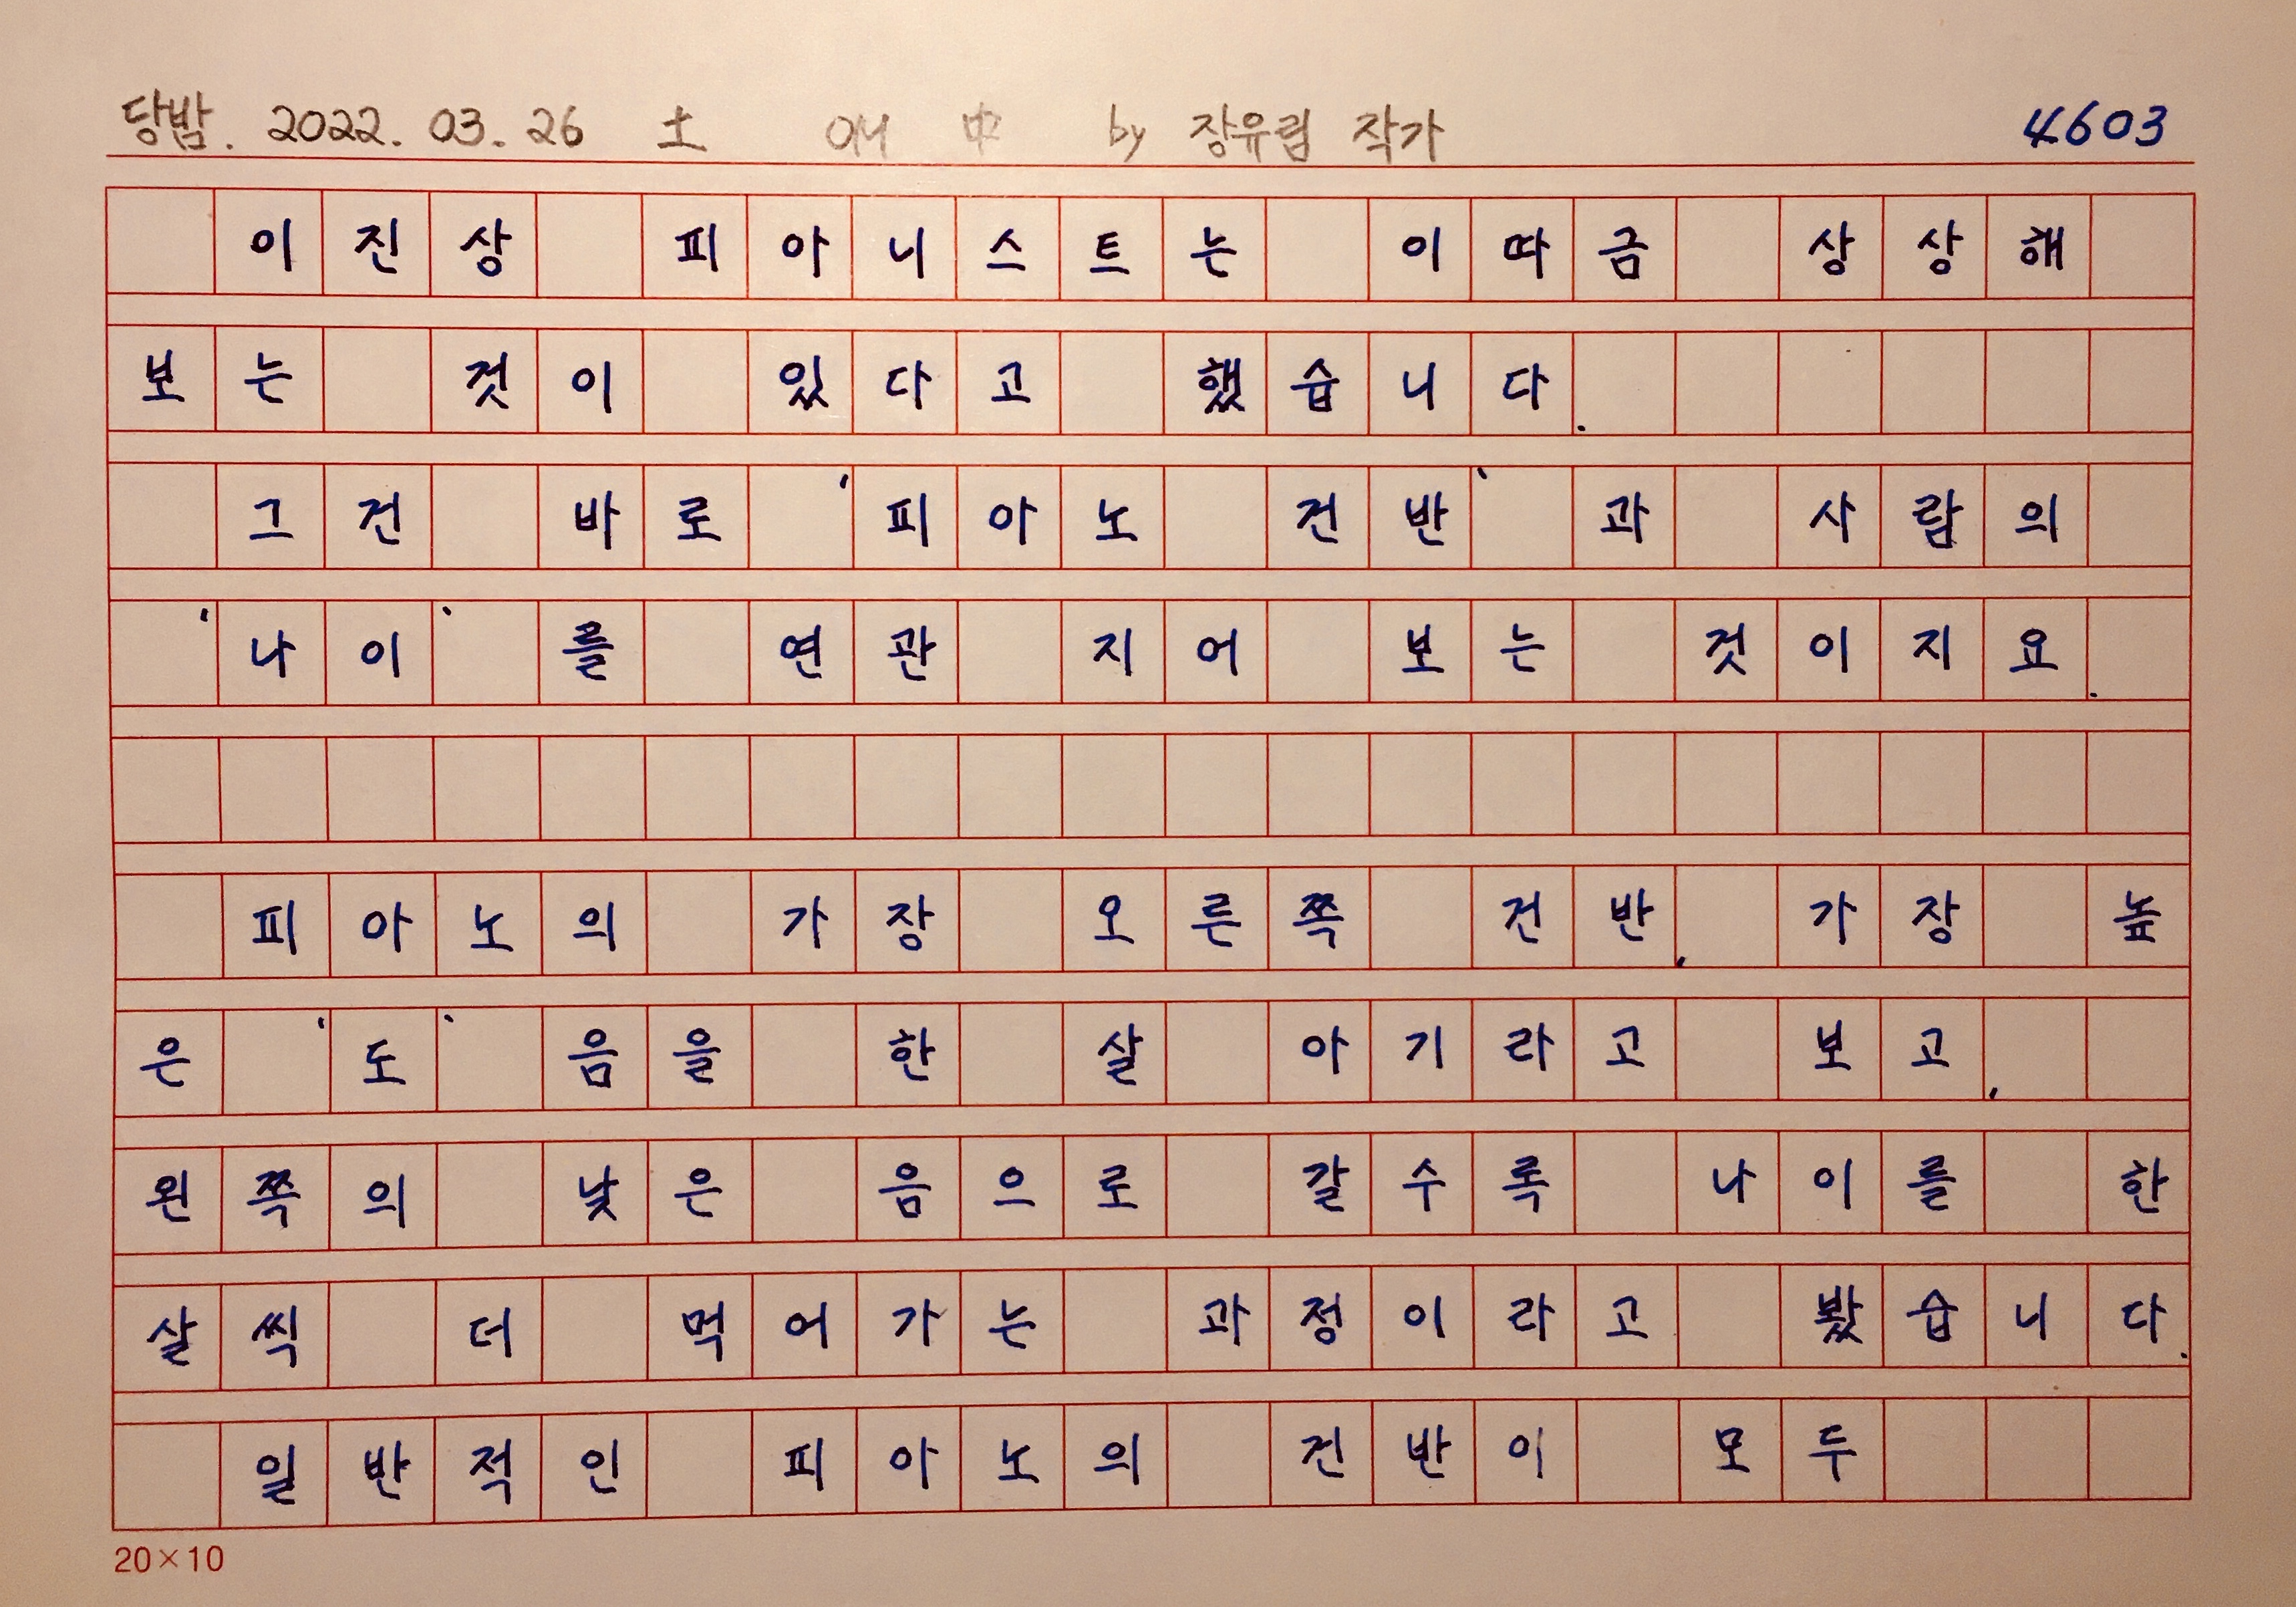 당밤. 2022. 03. 26 土 애 中 by 장유림 작가 4603
이진상 피아니스트는 이따금 상상해
보는 것이 있다고 했습니다.
그건 바로 '피아노 건반'과 사람의
'나이'를 연관 지어 보는 것이지요.
피아노의 가장 오른쪽 건반, 가장 높
은 '도' 음을 한 살 아기라고 보고,
왼쪽의 낮은 음으로 갈수록 나이를 한
살씩 더 먹어가는 과정이라고 봤습니다.
일반적인 피아노의 건반이 모두
20×10